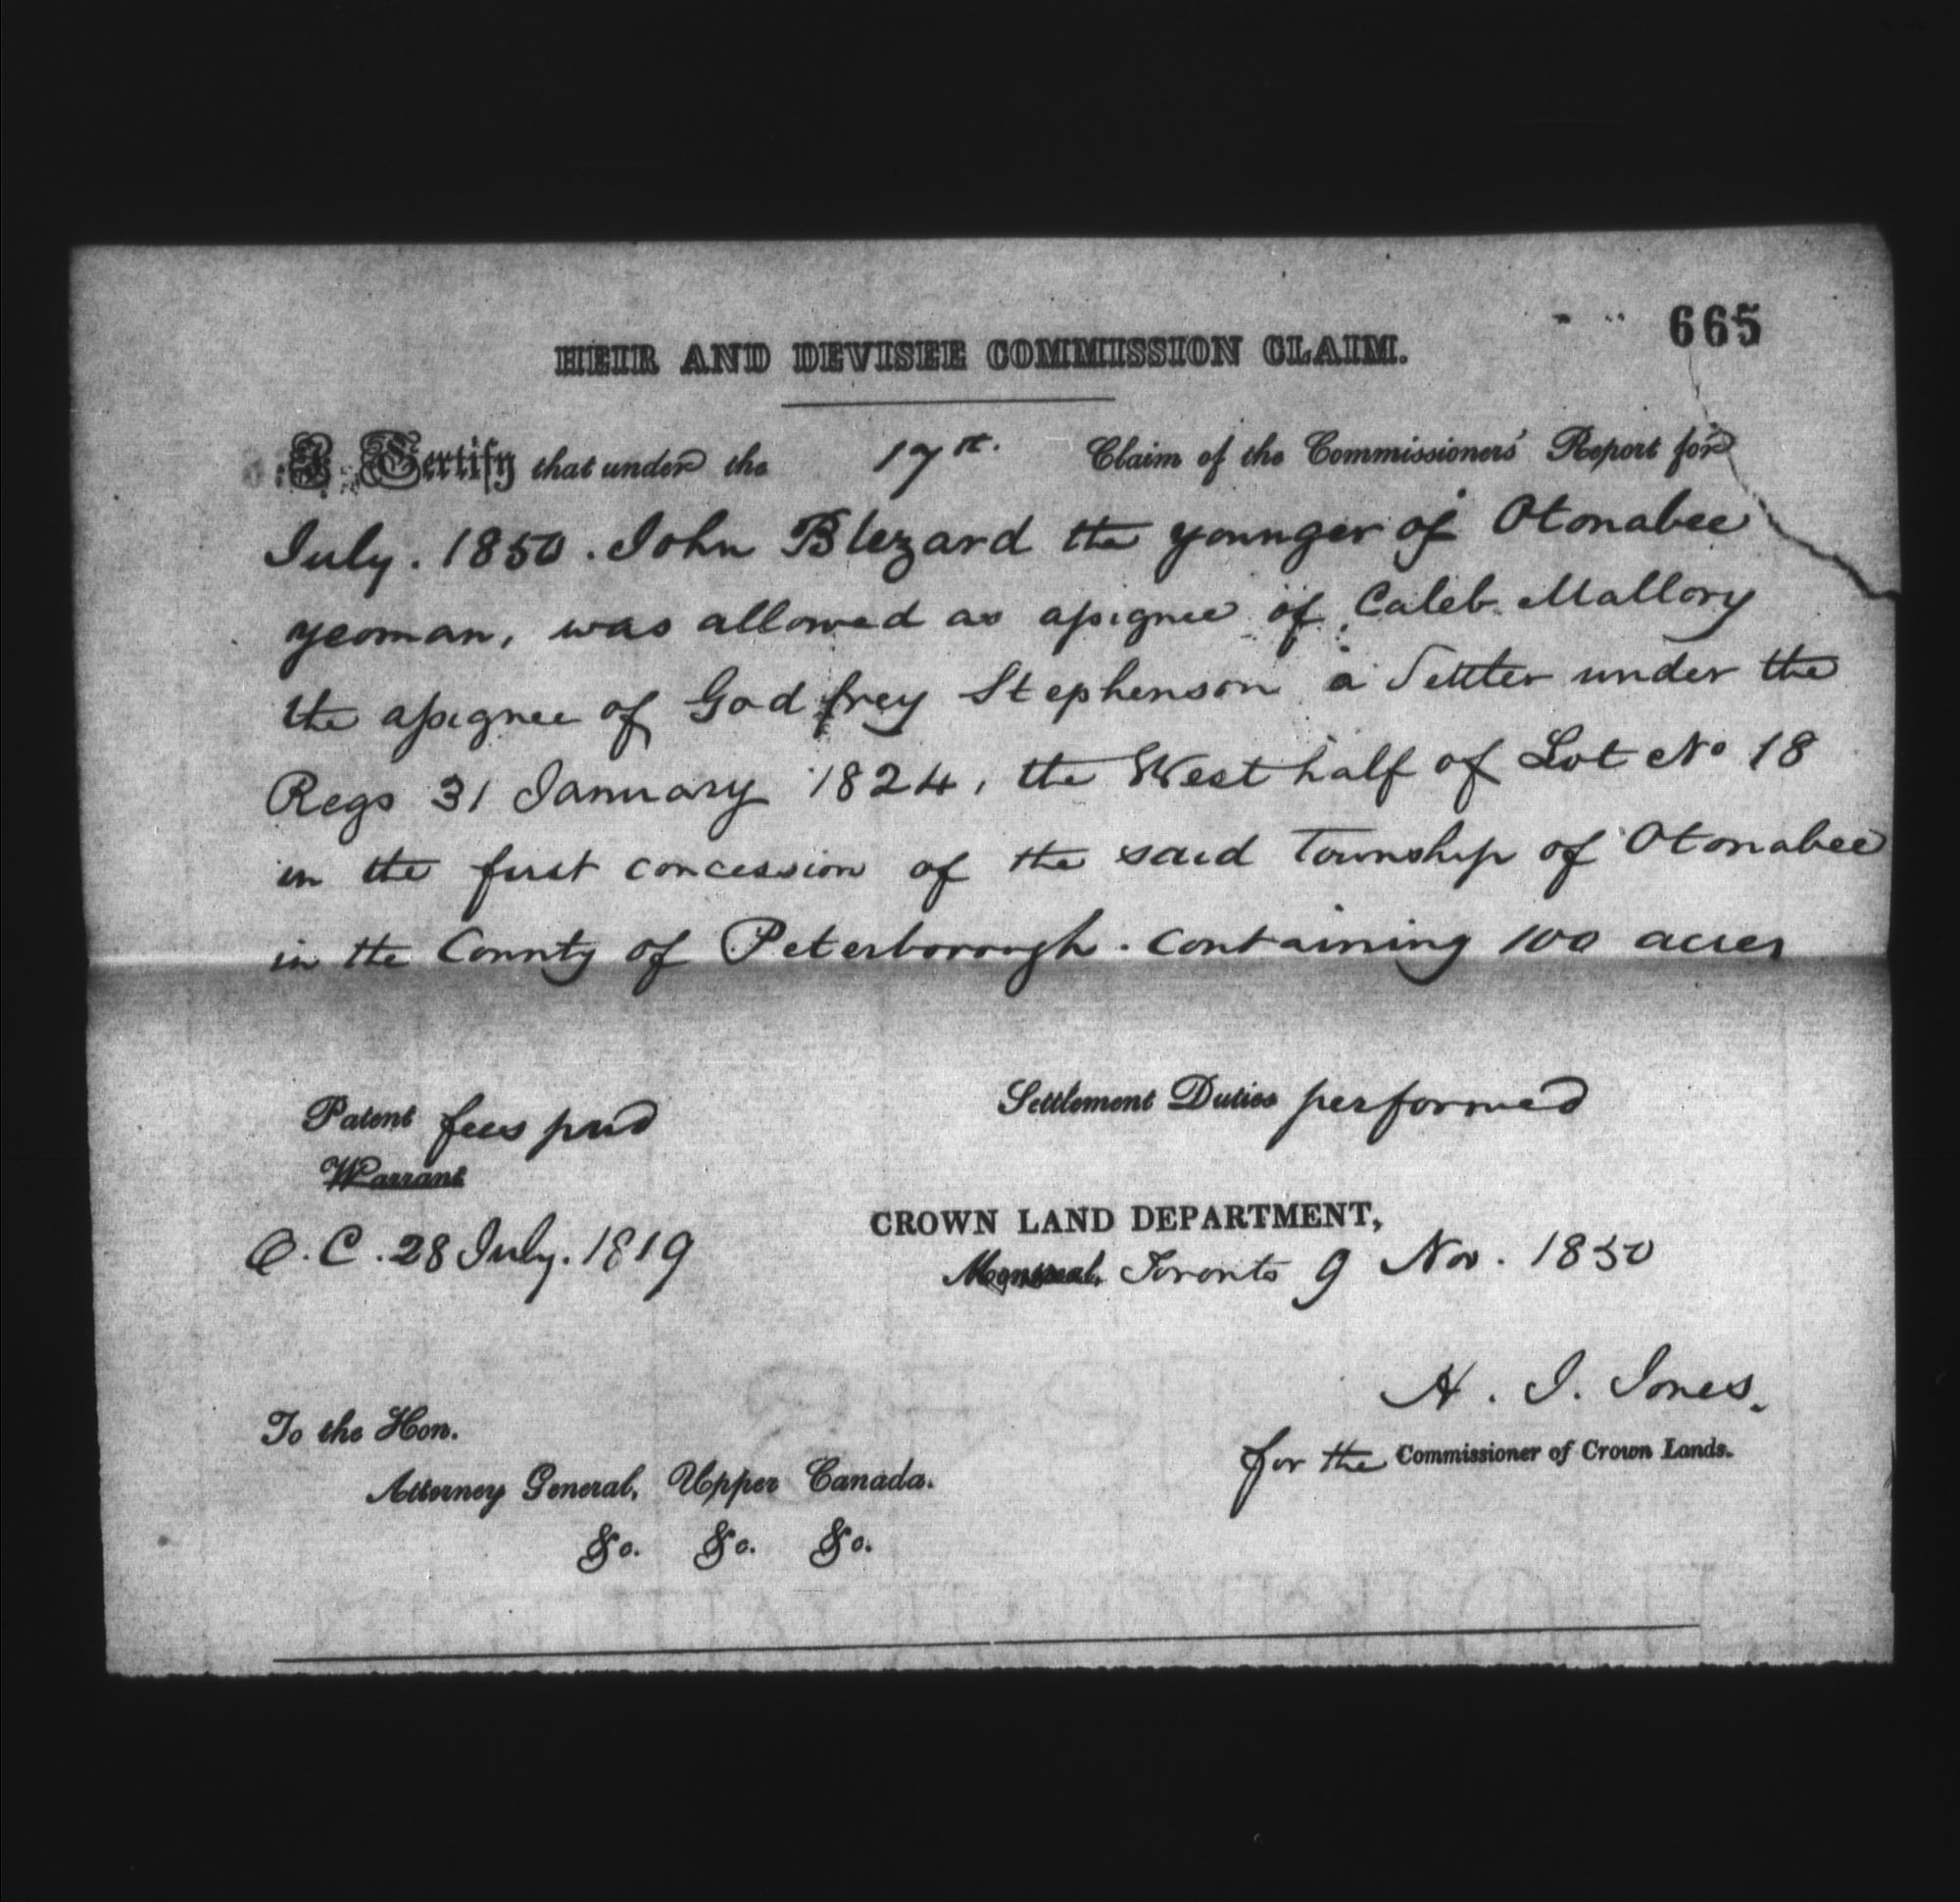 665
HEIR AND DEVISEE COMMISSION CLAIM.
I Certify that under the 17th. Claim of the Commissioners' Report for
July. 1850. John Blezard the younger of Otonabee
yeoman, was allowed as assignee of Caleb Mallory
the assignee of Godfrey Stephenson a Settler under the
Regs 31 January 1824, the West half of Lot No 18
in the first concession of the said Township of Otonabee
in the County of Peterborough. containing 100 acres
Patent fees paid
Settlement Duties performed
Warrant
O.C. 28 July. 1819
CROWN LAND DEPARTMENT,
Montreal, Toronto 9 Nov. 1850
H. J. Jones.
for the Commissioner of Crown Lands.
To the Hon.
Attorney General, Upper Canada.
&c. &c. &c.